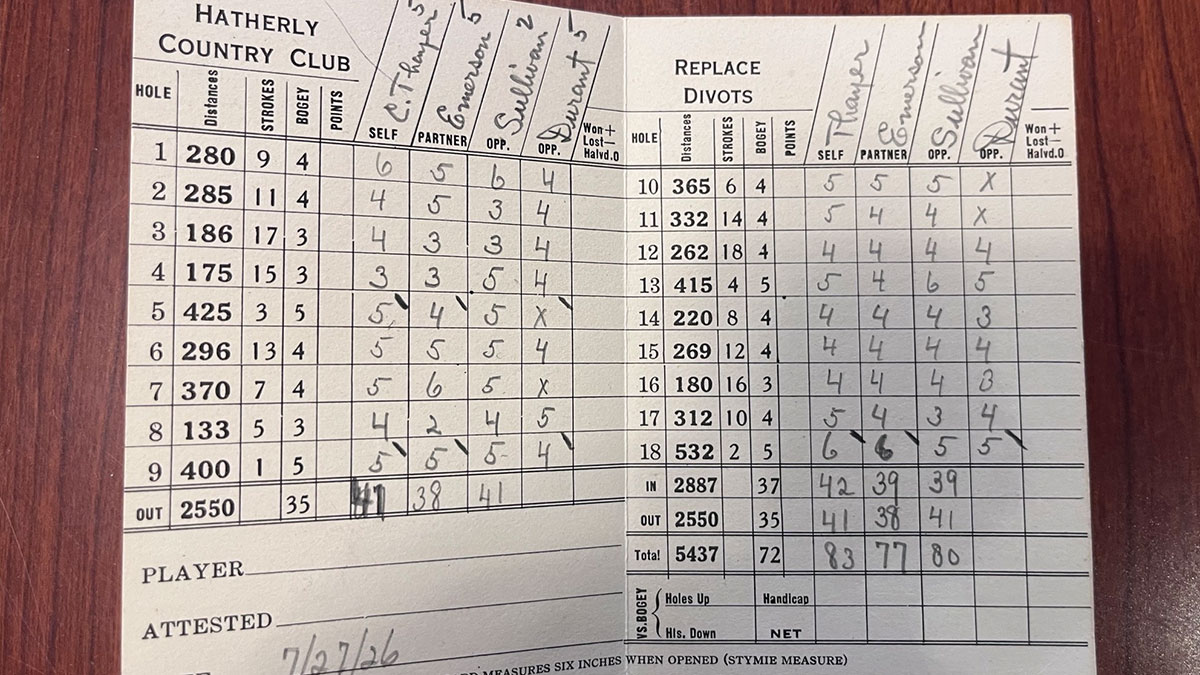 HATHERLY
COUNTRY CLUB
C. Thayer 5 Emerson 5 Sullivan 2 Durant 5
HOLE Distances STROKES BOGEY POINTS SELF PARTNER OPP. OPP. Won+ Lost− Halvd.O
1 280 9 4 6 5 6 4
2 285 11 4 4 5 3 4
3 186 17 3 4 3 3 4
4 175 15 3 3 3 5 4
5 425 3 5 5 4 5 X
6 296 13 4 5 5 5 4
7 370 7 4 5 6 5 X
8 133 5 3 4 2 4 5
9 400 1 5 5 5 5 4
OUT 2550 35 41 38 41
PLAYER
ATTESTED
7/27/26
REPLACE
DIVOTS
Thayer Emerson Sullivan Durant
HOLE Distances STROKES BOGEY POINTS SELF PARTNER OPP. OPP. Won+ Lost− Halvd.O
10 365 6 4 5 5 5 X
11 332 14 4 5 4 4 X
12 262 18 4 4 4 4 4
13 415 4 5 5 4 6 5
14 220 8 4 4 4 4 3
15 269 12 4 4 4 4 4
16 180 16 3 4 4 4 3
17 312 10 4 5 4 3 4
18 532 2 5 6 6 5 5
IN 2887 37 42 39 39
OUT 2550 35 41 38 41
Total 5437 72 83 77 80
VS. BOGEY Holes Up Handicap
Hls. Down NET
MEASURES SIX INCHES WHEN OPENED (STYMIE MEASURE)